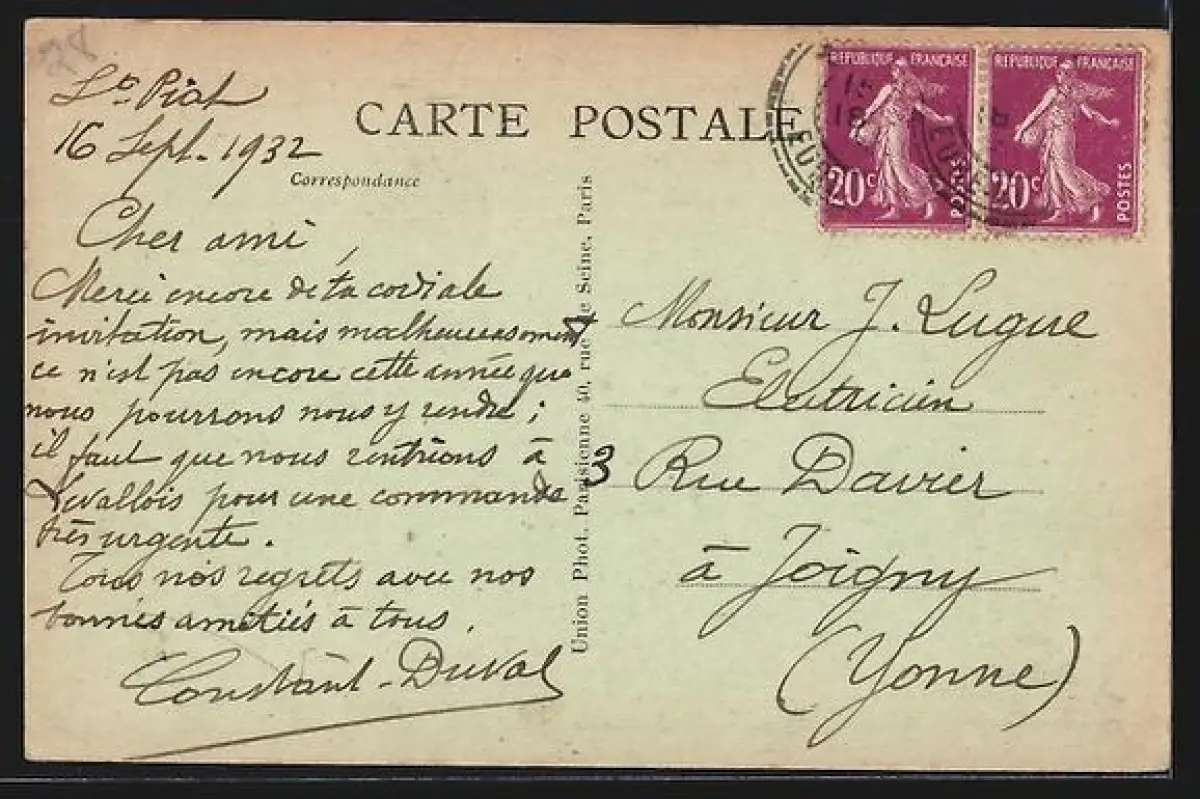 28
St Piat
16 Sept. 1932
CARTE POSTALE
Correspondance
Cher ami,
Merci encore de ta cordiale
invitation, mais malheureusement
ce n'est pas encore cette année que
nous pourrons nous y rendre ;
il faut que nous rentrions à
Levallois pour une commande
très urgente.
Tous nos regrets avec nos
bonnes amitiés à tous.
Constant-Duval
Union Phot. Parisienne 40, rue de Seine, Paris
REPUBLIQUE FRANÇAISE
20c POSTES
REPUBLIQUE FRANÇAISE
20c POSTES
Monsieur J. Lugue
Electricien
3 Rue Davier
à Joigny
(Yonne)